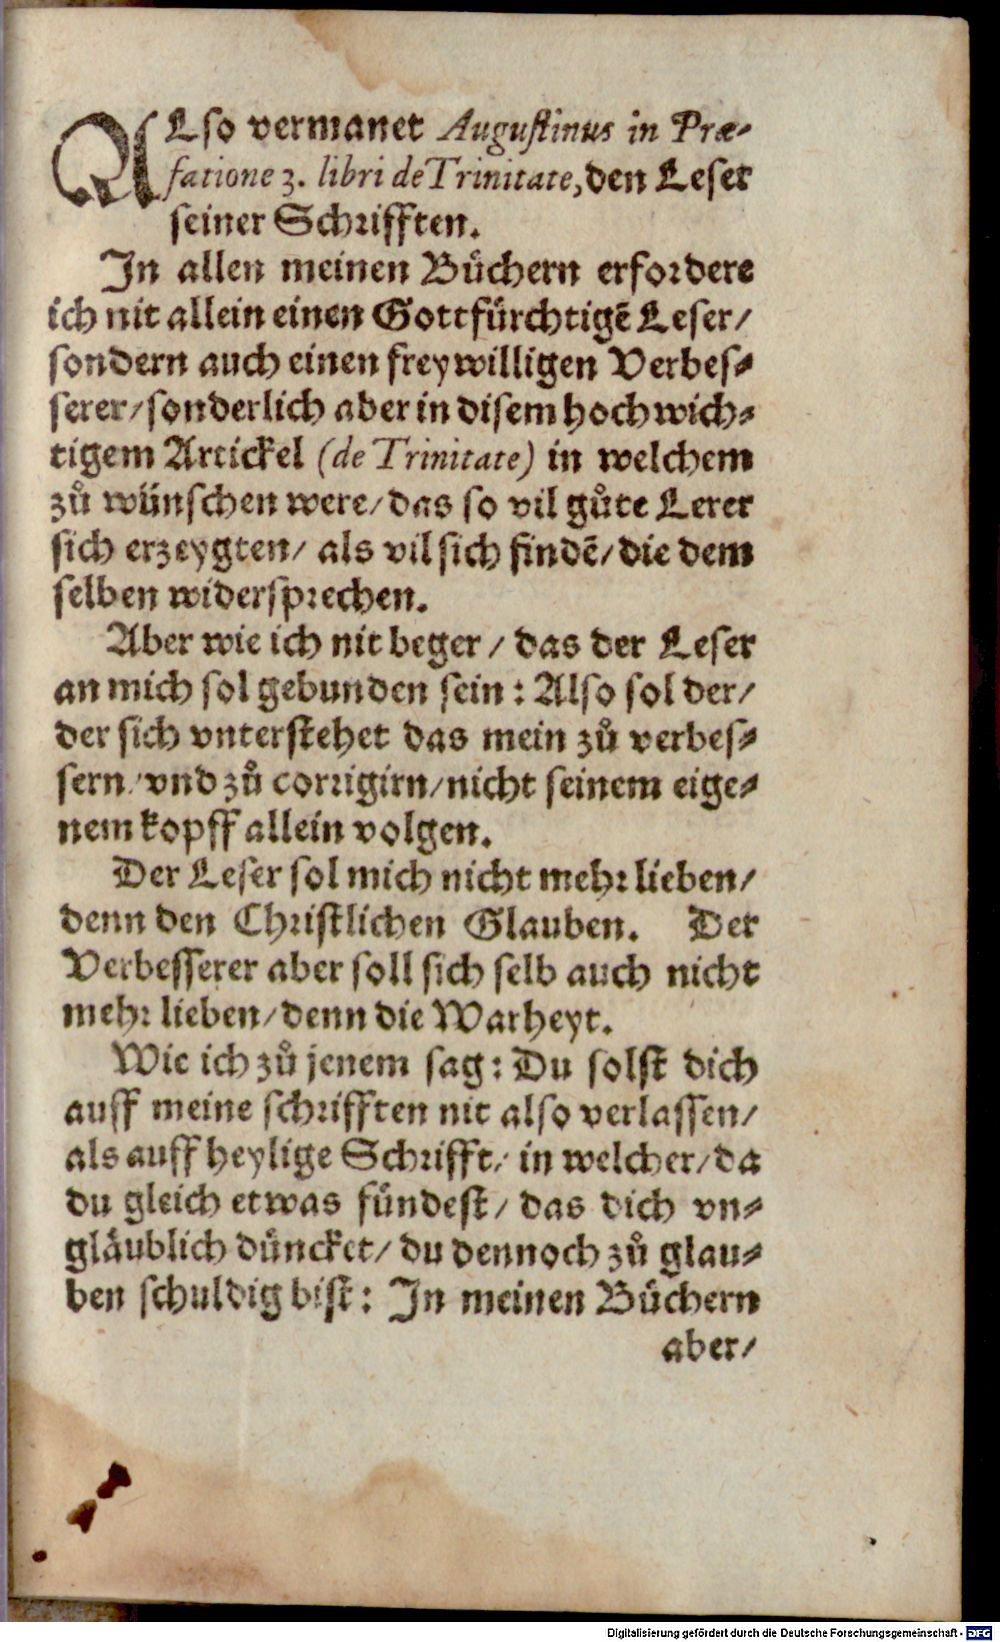 ALso vermanet Augustinus in Præ-
fatione 3. libri de Trinitate, den Leser
seiner Schrifften.
In allen meinen Bůchern erfordere
ich nit allein einen Gottfürchtigẽ Leser/
sondern auch einen freywilligen Verbes-
serer/ sonderlich aber in disem hochwich-
tigem Artickel (de Trinitate) in welchem
zů wünschen were/ das so vil gůte Lerer
sich erzeygten/ als vil sich findẽ/ die dem
selben widersprechen.
Aber wie ich nit beger/ das der Leser
an mich sol gebunden sein: Also sol der/
der sich vnterstehet das mein zů verbes-
sern/ vnd zů corrigirn/ nicht seinem eige-
nem kopff allein volgen.
Der Leser sol mich nicht mehr lieben/
denn den Christlichen Glauben. Der
Verbesserer aber soll sich selb auch nicht
mehr lieben/ denn die Warheyt.
Wie ich zů jenem sag: Du solst dich
auff meine schrifften nit also verlassen/
als auff heylige Schrifft/ in welcher/ da
du gleich etwas fündest/ das dich vn-
gläublich düncket/ du dennoch zů glau-
ben schuldig bist: In meinen Büchern
aber/
Digitalisierung gefördert durch die Deutsche Forschungsgemeinschaft - DFG